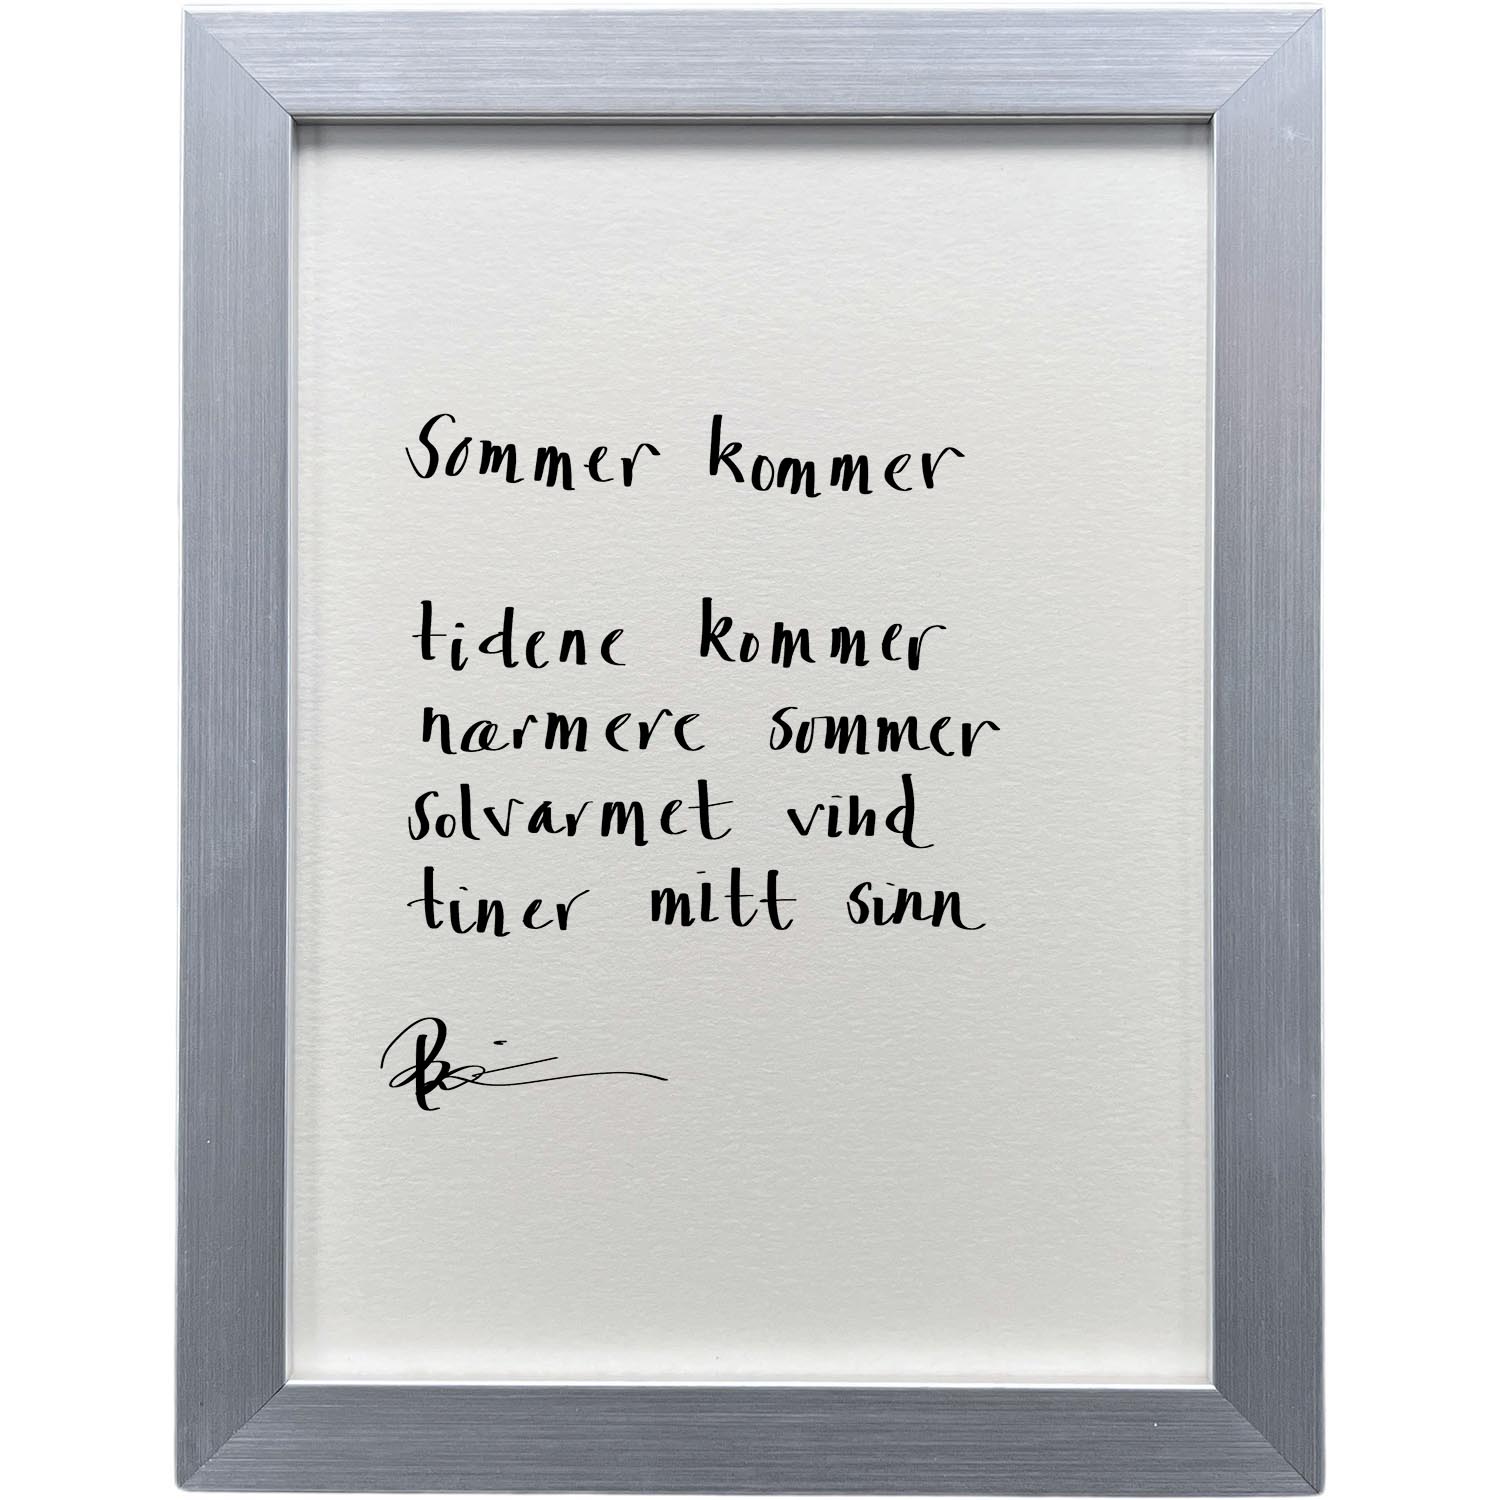 Sommer kommer
tidene kommer
nærmere sommer
solvarmet vind
tiner mitt sinn